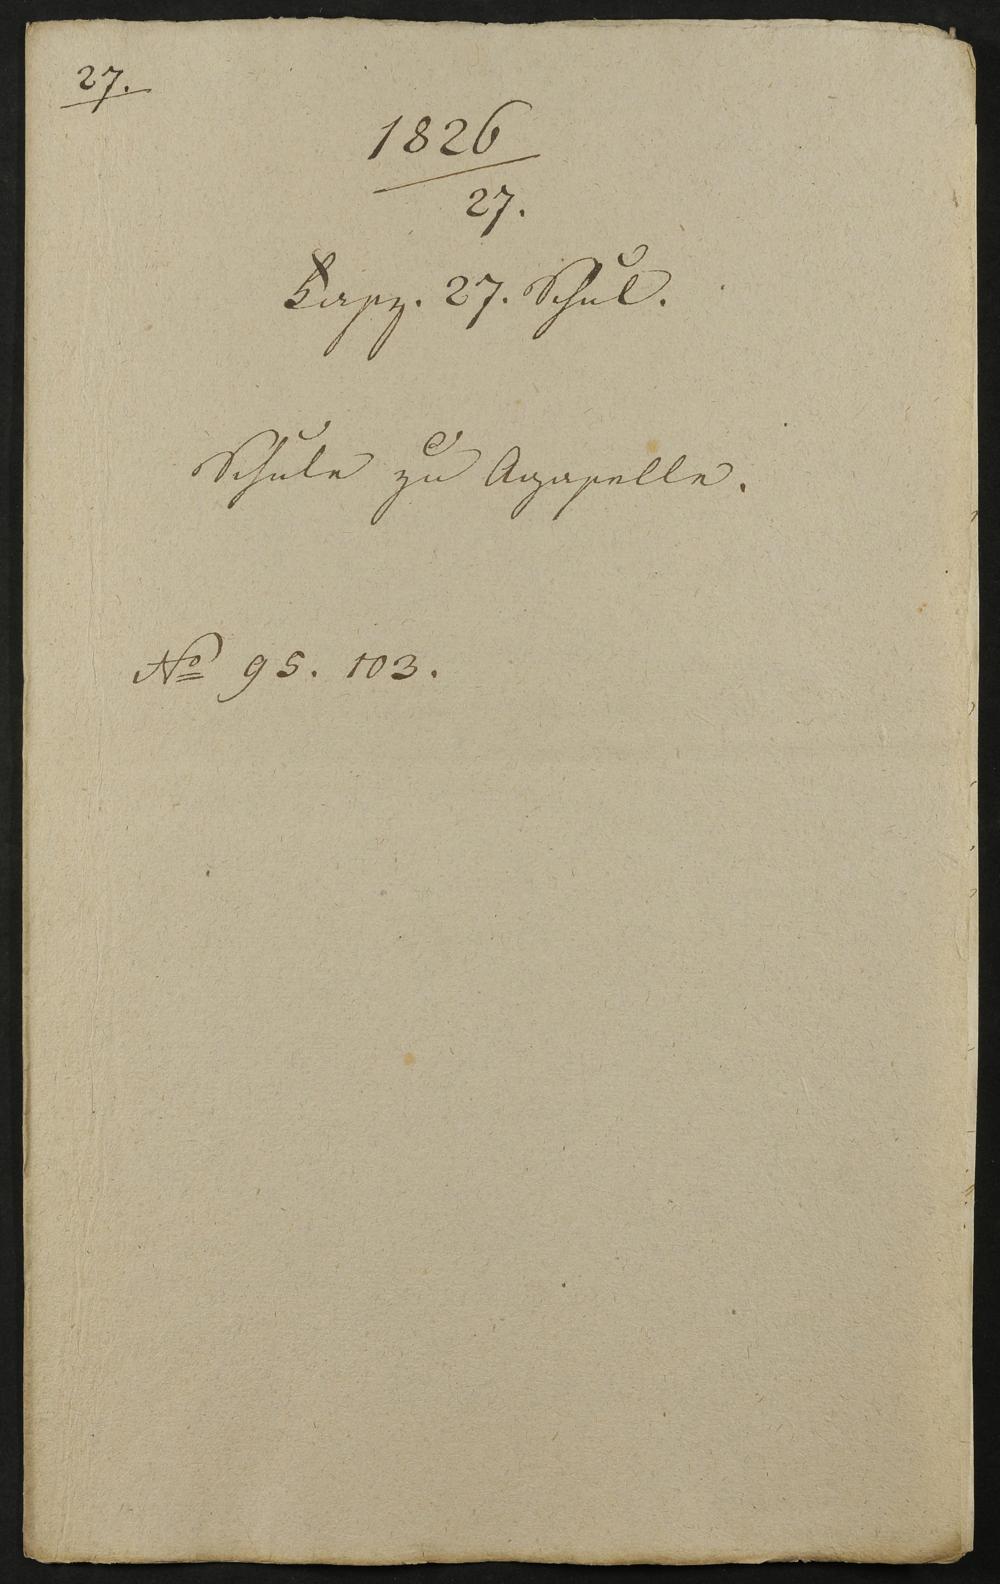 27.
1826
27.
Kapz. 27. Schul.
Schule zu Acqapelle.
No 95. 103.